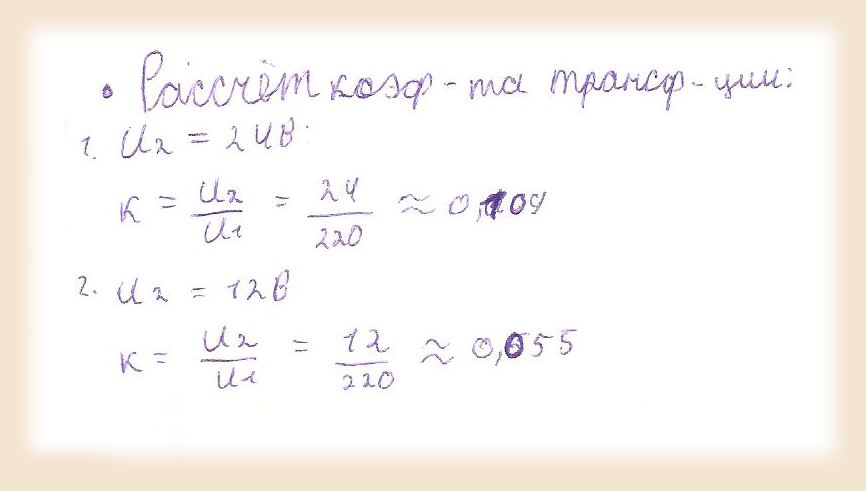 • Рассчёт коэф-та трансф-ции:
1. U2 = 24В:
K = U2/U1 = 24/220 ≈ 0,109
2. U2 = 12В
K = U2/U1 = 12/220 ≈ 0,055